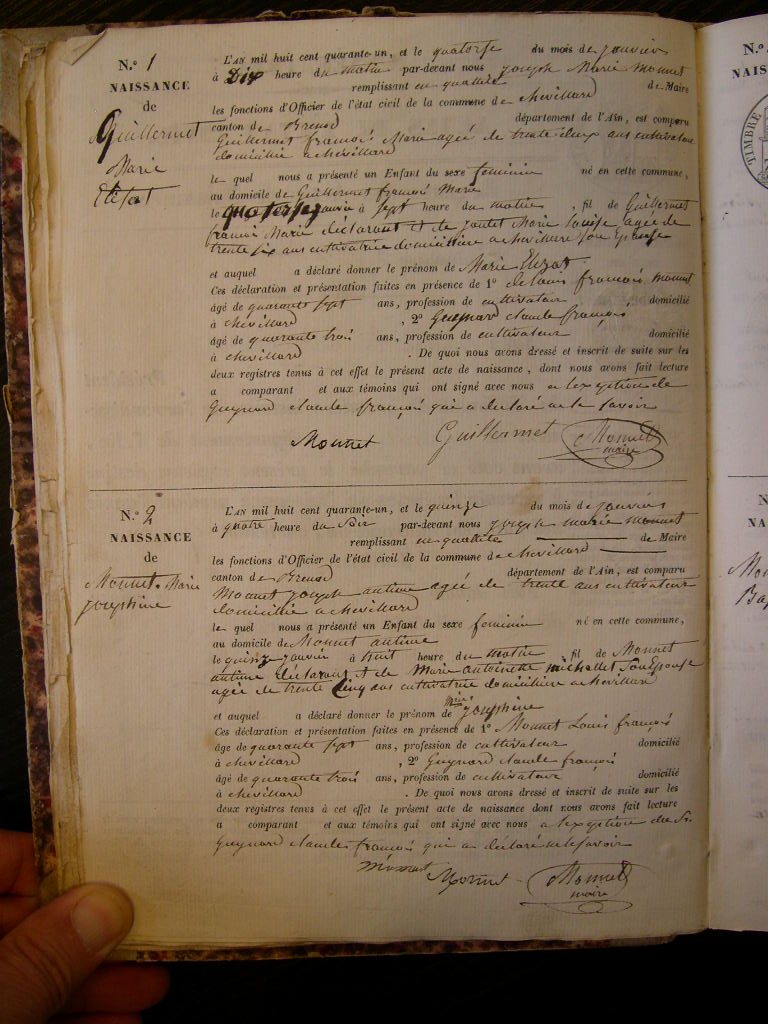 N.° 1
NAISSANCE
de
Guillermet
Marie
L'AN mil huit cent quarante-un, et le quatorze du mois de janvier
à Dix heure du matin par-devant nous joseph Marie Monnet
remplissant en qualité de Maire
les fonctions d'Officier de l'état civil de la commune de chevillard
canton de Brenod département de l'Ain, est comparu
Guillermet françois Marie agée de trente deux ans cultivateur
domicilié a chevillard
le quel nous a présenté un Enfant du sexe feminin né en cette commune,
au domicile de Guillermet françois Marie
le quatorze janvier à sept heure du matin , fil de Guillermet
françois Marie déclarant et de Marie louise agée de
trente six ans cultivatrice domiciliée a chevillard son Epouse
et auquel a déclaré donner le prénom de Marie
Ces déclaration et présentation faites en présence de 1° de louis françois monnet
âgé de quarante sept ans, profession de cultivateur domicilié
à chevillard , 2° Guynard claude françois
âgé de quarante trois ans, profession de cultivateur domicilié
à chevillard . De quoi nous avons dressé et inscrit de suite sur les
deux registres tenus à cet effet le présent acte de naissance, dont nous avons fait lecture
a comparant et aux témoins qui ont signé avec nous a lexception de
Guynard claude françois qui a declaré ne le savoir
Monnet Guillermet Monnet
maire
N.° 2
NAISSANCE
de
Monnet Marie
josephine
L'AN mil huit cent quarante-un, et le quinze du mois de janvier
à quatre heure du soir par-devant nous joseph marie monnet
remplissant en qualité de Maire
les fonctions d'Officier de l'état civil de la commune de chevillard
canton de Brenod département de l'Ain, est comparu
Monnet joseph antime agée de trente ans cultivateur
domicilié a chevillard
le quel nous a présenté un Enfant du sexe feminin né en cette commune,
au domicile de Monnet antime
le quinze janvier à huit heure du matin fil de Monnet
antime déclarant et de Marie antoinette michellet son Epouse
agée de trente cinq ans cultivatrice domiciliée a chevillard
et auquel a déclaré donner le prénom de marie josephine
Ces déclaration et présentation faites en présence de 1° Monnet Louis françois
âge de quarante sept ans, profession de cultivateur domicilié
à chevillard , 2° Guynard claude françois
âgé de quarante trois ans, profession de cultivateur domicilié
à chevillard . De quoi nous avons dressé et inscrit de suite sur les
deux registres tenus à cet effet le présent acte de naissance dont nous avons fait lecture
a comparant et aux témoins qui ont signé avec nous a lexception de
Guynard claude françois qui a declaré ne le savoir
Monnet Monnet
maire
TIMBRE